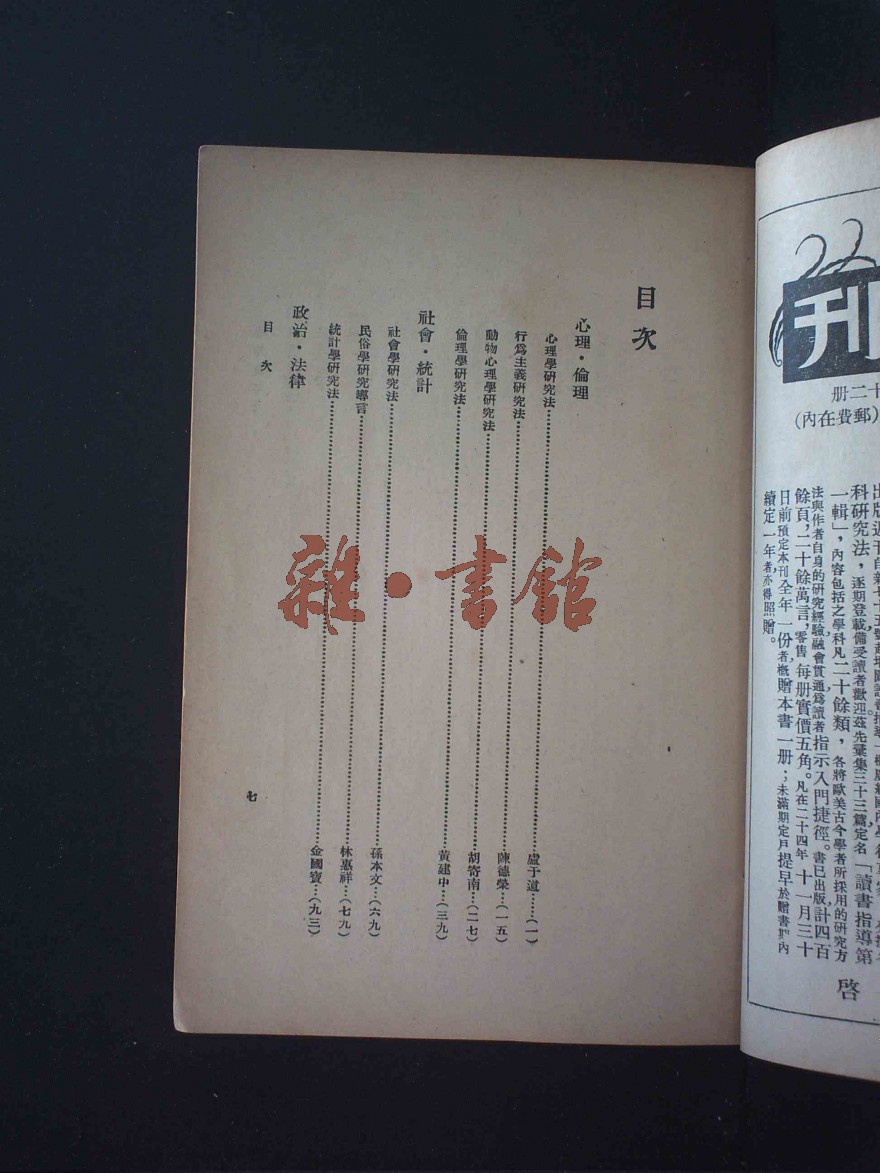 刊
十二册
(郵費在內)
科研究法，逐期登載備受讀者歡迎茲先彙集三十三篇定名「讀書指導第
一輯」，內容包括之學科凡二十餘類，各將歐美古今學者所採用的研究方
法與作者自身的研究經驗融會貫通爲讀者指示入門捷徑。書已出版，計四百
餘頁，二十餘萬言，零售每册實價五角。凡在二十四年十一月三十
日前預定本刊全年一份者，概贈本書一册；未滿期定戶提早於贈書期內
續定一年者，亦得照贈。
啓
目次
心理・倫理
心理學研究法……盧于道……(一)
行爲主義研究法……陳德榮…(一五)
動物心理學研究法……胡寄南…(二七)
倫理學研究法……黃建中…(三九)
社會・統計
社會學研究法……孫本文…(六九)
民俗學研究導言……林惠祥…(七九)
統計學研究法……金國寶…(九三)
政治・法律
目次
七
雜・書館